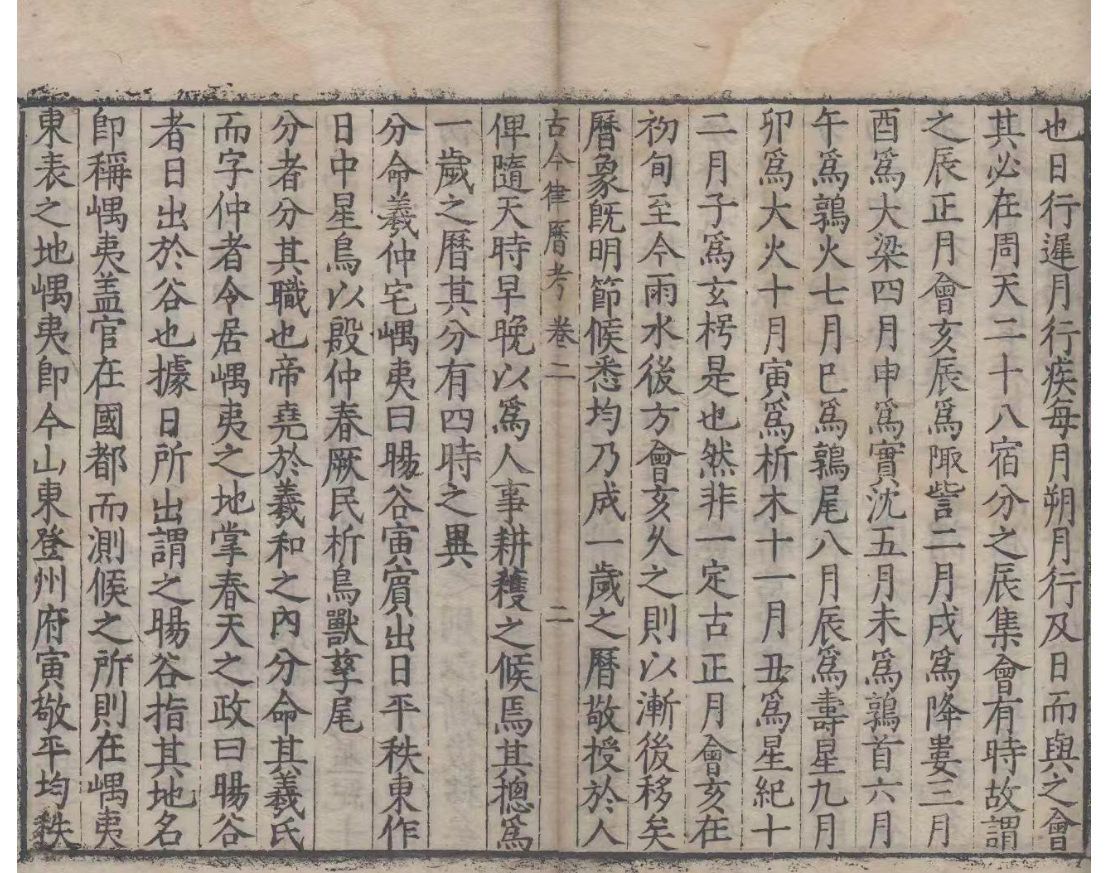 也日行遲月行疾每月朔月行及日而與之會
其必在周天二十八宿分之辰集會有時故謂
之辰正月會亥辰爲陬訾二月戌爲降婁三月
酉爲大梁四月申爲實沈五月未爲鶉首六月
午爲鶉火七月巳爲鶉尾八月辰爲壽星九月
卯爲大火十月寅爲析木十一月丑爲星紀十
二月子爲玄枵是也然非一定古正月會亥在
初旬至今雨水後方會亥乆之則以漸後移矣
曆象旣明節候悉均乃成一歲之曆敬授於人
古今律曆考 卷二 二
俾隨天時早晚以爲人事耕穫之候焉其總爲
一歲之曆其分有四時之異
分命羲仲宅嵎夷曰暘谷寅賓出日平秩東作
日中星鳥以殷仲春厥民析鳥獸孳尾
分者分其職也帝堯於羲和之內分命其羲氏
而字仲者令居嵎夷之地掌春天之政曰暘谷
者日出於谷也據日所出謂之暘谷指其地名
卽稱嵎夷盖官在國都而測候之所則在嵎夷
東表之地嵎夷卽今山東登州府寅敬平均秩